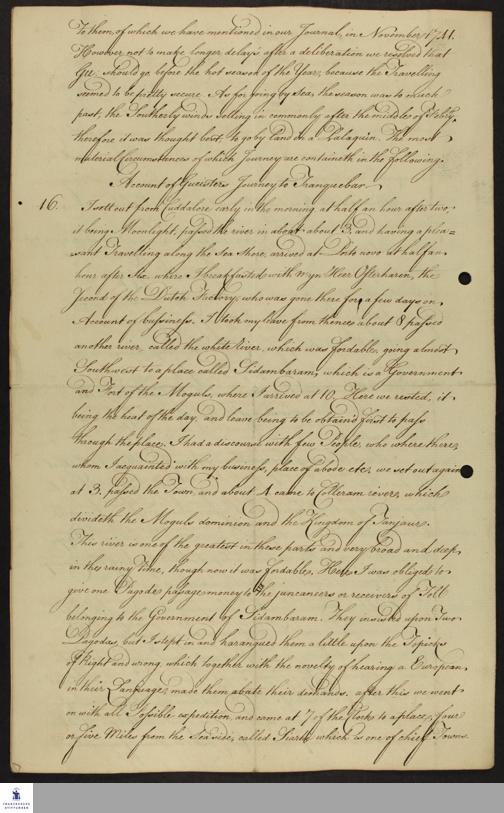 To them, of which we have mentioned in our Journal, in November 1741.
However not to make longer delays after a deliberation we resolved that
Gu: should go before the hot season of the Year, because the Travelling
seemed to be pretty secure. As for going by Sea, the season was to much
past, the Southerly winds setting in commonly after the middle of Febry,
therefore it was thought best, to go by land on a Palaquin. The most
material Circumstances of which Journey are containeth in the following.
Account of Gueisters Journey to Tranquebar
16. I sett out from Cuddalore early in the morning at half an hour after two,
it being Moonlight, passed the river in about about 3. and having a plea=
sant Travelling along the Sea Shore, arrived at Porto novo at half an
hour after Six. where I breakfasted with myn Heer Osterharen, the
Second of the Dutch Factory, who was gone there for a few days on
Account of bussiness. I took my leave from thence about 8 passed
another river, called the white River, which was fordable, going almost
Southwest to a place called Sidambaram, which is a Government
and Fort of the Moguls, where I arrived at 10. Here we rested, it
being the heat of the day, and leave being to be obtain'd first to pass
through the place. I had a discourse with few People, who where there,
whom I acquainted with my business, place of abode etc. we set out again
at 3. passed the Town, and about 4 came to Colleram river, which
divideth the Moguls dominion and the Kingdom of Tanjaur.
This river is one of the greatest in these parts and very broad and deep
in the rainy Time, though now it was fordable. Here I was obliged to
give one Pagode passage money to the juncaneers or receivers of Toll
belonging to the Government of Sidambaram. They insisted upon Two
Pagodas, but I slept in and harangued them a little upon the Topicks
of Right and wrong, which together with the novelty of hearing a European
in their Language, made them abate their demands. after this we went
on with all Possible expedition, and came at 7 of the Clock to a place, four
or five Miles from the Sea side, called Siarli which is one of chief Towns
FRANCKESCHE STIFTUNGEN